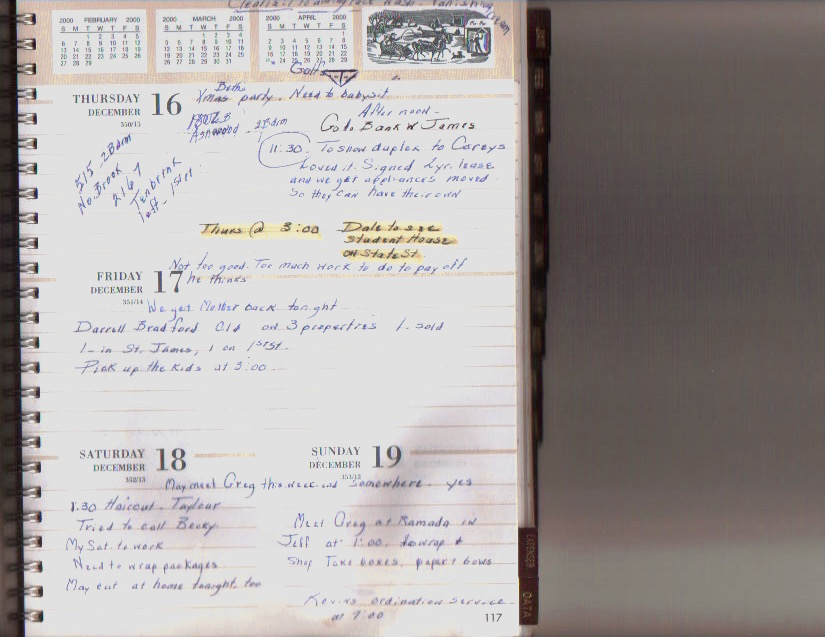 2000 FEBRUARY 2000
S M T W T F S
1 2 3 4 5
6 7 8 9 10 11 12
13 14 15 16 17 18 19
20 21 22 23 24 25 26
27 28 29
2000 MARCH 2000
S M T W T F S
1 2 3 4
5 6 7 8 9 10 11
12 13 14 15 16 17 18
19 20 21 22 23 24 25
26 27 28 29 30 31
2000 APRIL 2000
S M T W T F S
1
2 3 4 5 6 7 8
9 10 11 12 13 14 15
16 17 18 19 20 21 22
THURSDAY 16
DECEMBER
350/15
Beth
Xmas party. Need to babysit
After noon -
Go to Bank W James
2Bdrm
515 2Bdrm
No. Brook
2167
Tenbrink
left - 1st
11:30 To show duplex to Careys
Loved it. Signed 2yr. lease
and we get appliances moved
So they can have their own
Thurs @ 3:00 Dale to see
Student House
on State St.
Not too good. Too much work to do to pay off
he thinks
FRIDAY 17
DECEMBER
351/14
We get Mother back tonight
Darrell Bradford Cld on 3 properties 1 sold
1 - in St. James, 1 on 1st St.
Pick up the kids at 3:00
SATURDAY 18
DECEMBER
352/13
SUNDAY 19
DECEMBER
353/12
May meet Greg this week-end somewhere. yes
1:30 Haircut - Taylour
Tried to call Becky
My Sat. to work
Need to wrap packages
May eat at home tonight, too
Meet Greg at Ramada in
Jeff at 1:00. to wrap &
Shop Take boxes, paper & bows
Kevins ordination service
at 7:00
117
EXPENSES
DATA